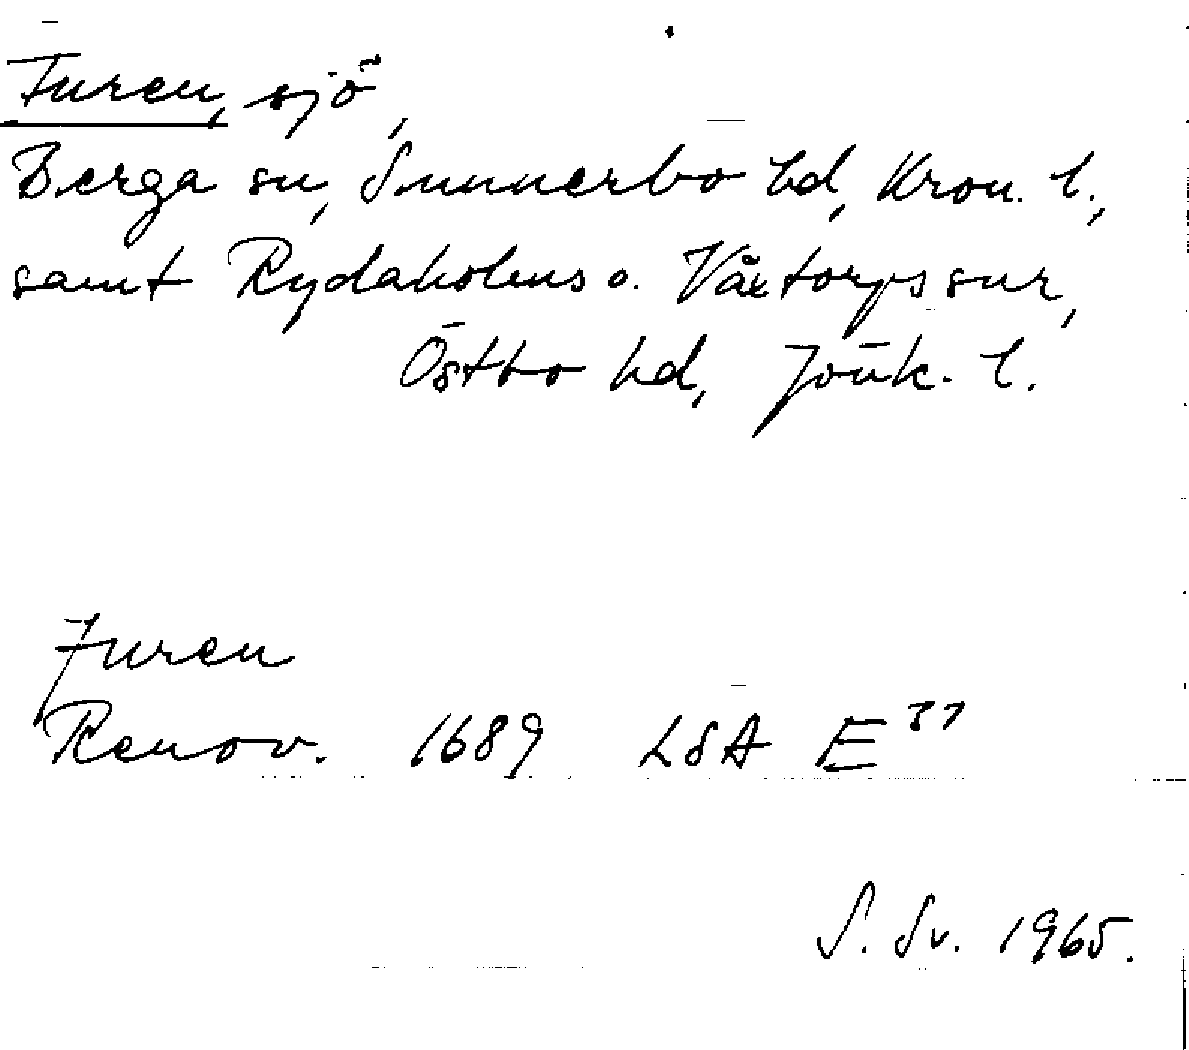 Furen, sjö,
Berga sn, Sunnerbo hd, Kron. l.,
samt Rydaholms o. Våxtorps snr,
Östbo hd, Jönk. l.
Furen
Renov. 1689 LSA E 37
S. Sv. 1965.